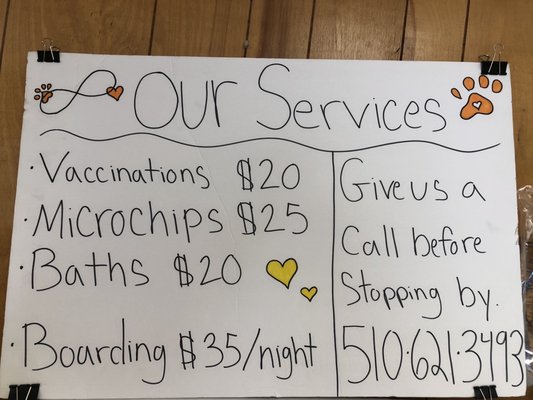 Our Services
· Vaccinations $20
· Microchips $25
· Baths $20
· Boarding $35/night
Give us a
Call before
Stopping by.
510·621·3493